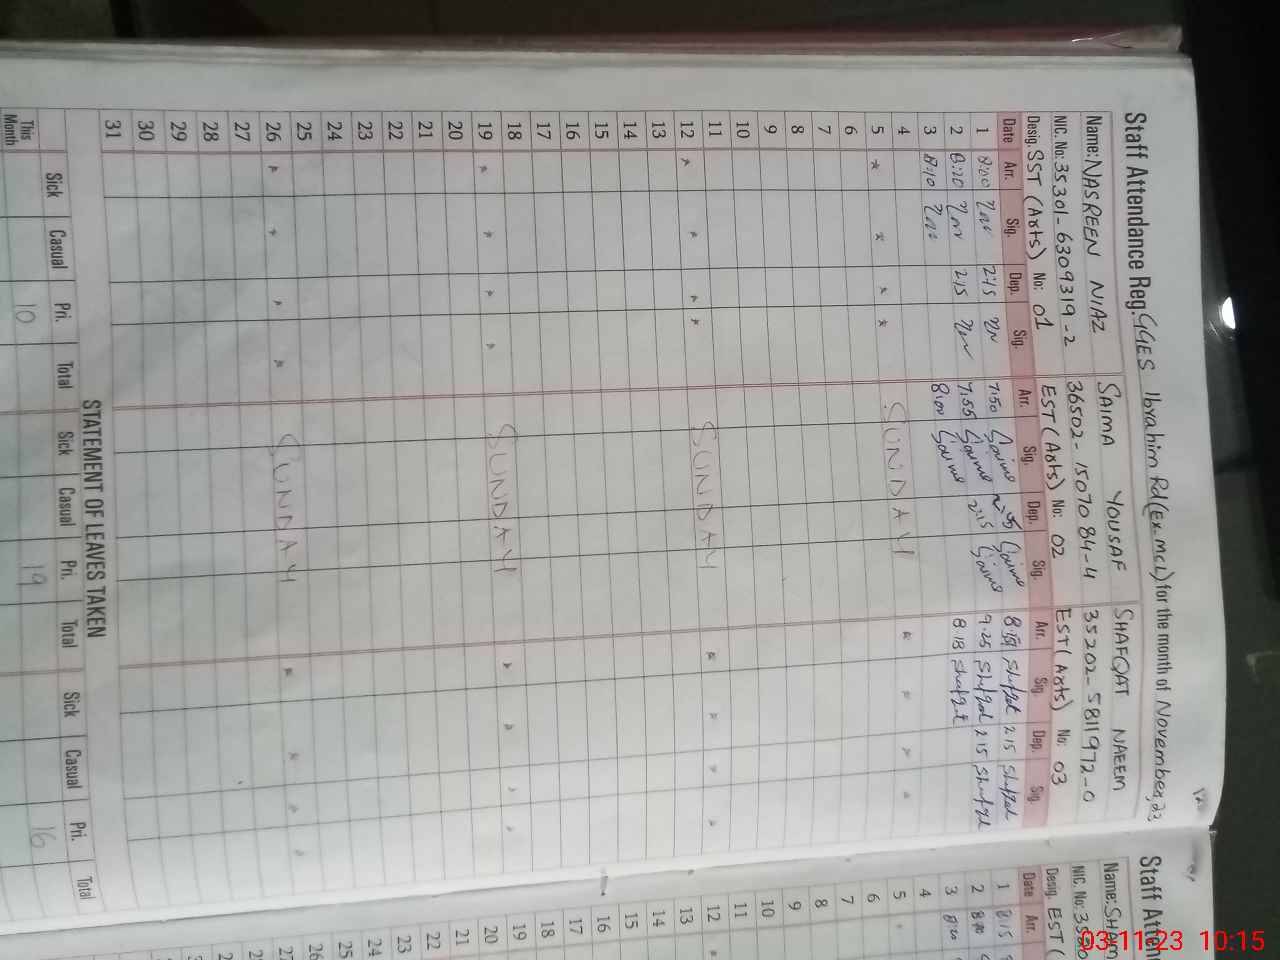 Staff Attendance Reg. GGES Ibrahim Rd (Ex. MCL) for the month of November, 23
Name: NASREEN NIAZ SAIMA YOUSAF SHAFQAT NAEEM
NIC. No: 35301-6309319-2 36502-1507084-4 35202-5811972-0
Desig. SST (Arts) No: 01 EST (Arts) No: 02 EST (Arts) No: 03
Date Arr. Sig. Dep. Sig. Arr. Sig. Dep. Sig. Arr. Sig. Dep. Sig.
1 8:00 2:15 7:50 Saima Saima Shafqat 2 15 Shafqat
2 8:20 2:15 7:55 Saima 2:15 Saima 9.25 Shafqat 2 15 Shafqat
3 8:10 8:00 Saima 8.18 Shafqat
4
5 SUNDAY
6
7
8
9
10
11
12 SUNDAY
13
14
15
16
17
18
19 SUNDAY
20
21
22
23
24
25
26 SUNDAY
27
28
29
30
31
STATEMENT OF LEAVES TAKEN
Sick Casual Pri. Total Sick Casual Pri. Total Sick Casual Pri. Total
This Month 10 19 16
Staff Atten
Name: SHAM
NIC. No: 3520
Desig. EST (
Date Arr.
1 8:15
2
3
4
5
6
7
8
9
10
11
12
13
14
15
16
17
18
19
20
21
22
23
24
25
26
27
03-11-23 10:15